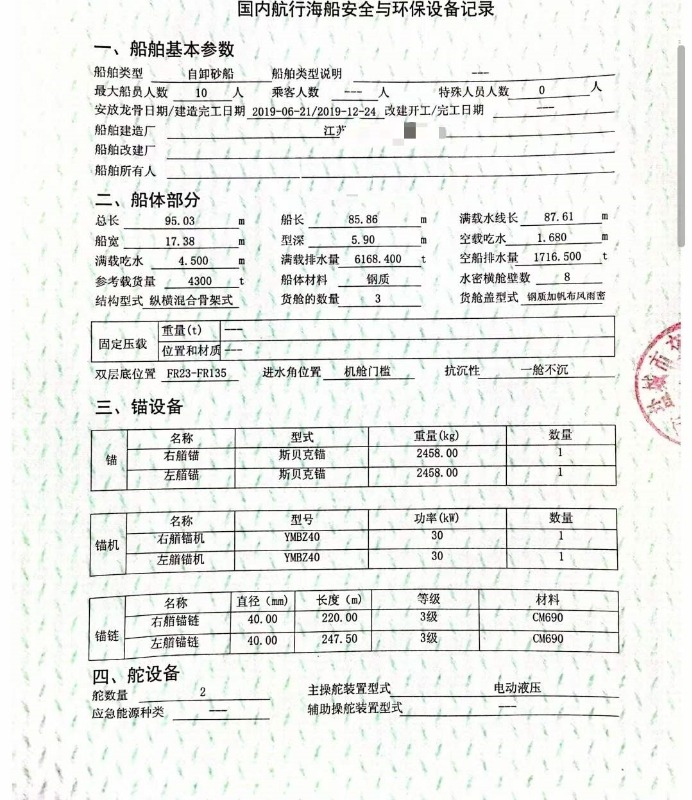 国内航行海船安全与环保设备记录
一、船舶基本参数
船舶类型 自卸砂船 船舶类型说明 ---
最大船员人数 10 人 乘客人数 --- 人 特殊人员人数 0 人
安放龙骨日期/建造完工日期 2019-06-21/2019-12-24 改建开工/完工日期 ---
船舶建造厂 江苏
船舶改建厂
船舶所有人
二、船体部分
总长 95.03 m 船长 85.86 m 满载水线长 87.61 m
船宽 17.38 m 型深 5.90 m 空载吃水 1.680 m
满载吃水 4.500 m 满载排水量 6168.400 t 空船排水量 1716.500 t
参考载货量 4300 t 船体材料 钢质 水密横舱壁数 8
结构型式 纵横混合骨架式 货舱的数量 3 货舱盖型式 钢质加帆布风雨密
固定压载 重量(t) ---
位置和材质 ---
双层底位置 FR23-FR135 进水角位置 机舱门槛 抗沉性 一舱不沉
三、锚设备
锚 名称 型式 重量(kg) 数量
右艏锚 斯贝克锚 2458.00 1
左艏锚 斯贝克锚 2458.00 1
锚机 名称 型号 功率(kW) 数量
右艏锚机 YMBZ40 30 1
左艏锚机 YMBZ40 30 1
锚链 名称 直径(mm) 长度(m) 等级 材料
右艏锚链 40.00 220.00 3级 CM690
左艏锚链 40.00 247.50 3级 CM690
四、舵设备
舵数量 2 主操舵装置型式 电动液压
应急能源种类 --- 辅助操舵装置型式 ---